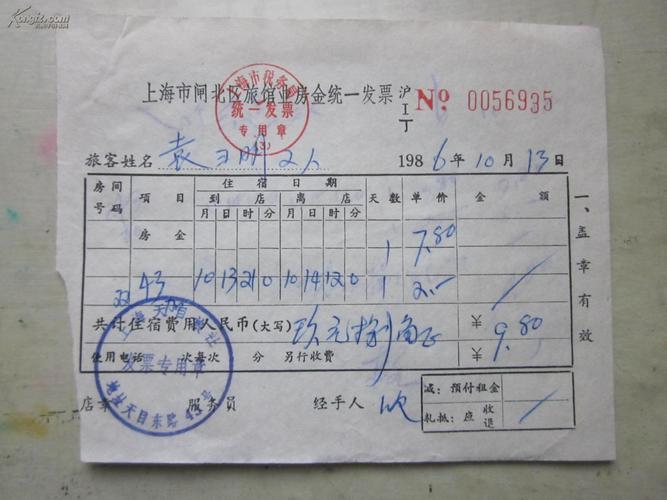 Kongfz.com
上海市闸北区旅馆业房金统一发票 沪I丁 № 0056935
上海市税务局
统一发票
专用章
(3)
旅客姓名 袁 明 2人 1986年10月13日
房间号码 项目 住宿日期 天数 单价 金额
到店 离店
月 日 时 分 月 日 时 分
房金 1 7.80
22 43 10 13 21 0 10 14 12 0 1 2.-
共计住宿费用人民币(大写) 玖元捌角正 ¥9.80
使用电话 次每次 分 另行收费 ¥
减: 预付租金
轧抵: 应收退
店章 服务员 经手人
一、盖章有效
发票专用章
地址天目东路43号